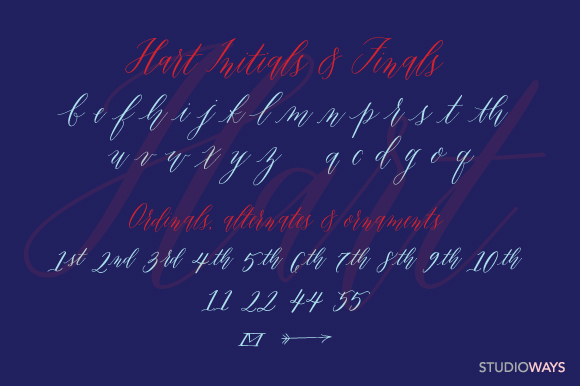 Hart Initials & Finals
b e f h i j k l m n p r s t th
u v w x y z a c d g o q
Ordinals, alternates & ornaments
1st 2nd 3rd 4th 5th 6th 7th 8th 9th 10th
11 22 44 55
Hart
STUDIOWAYS